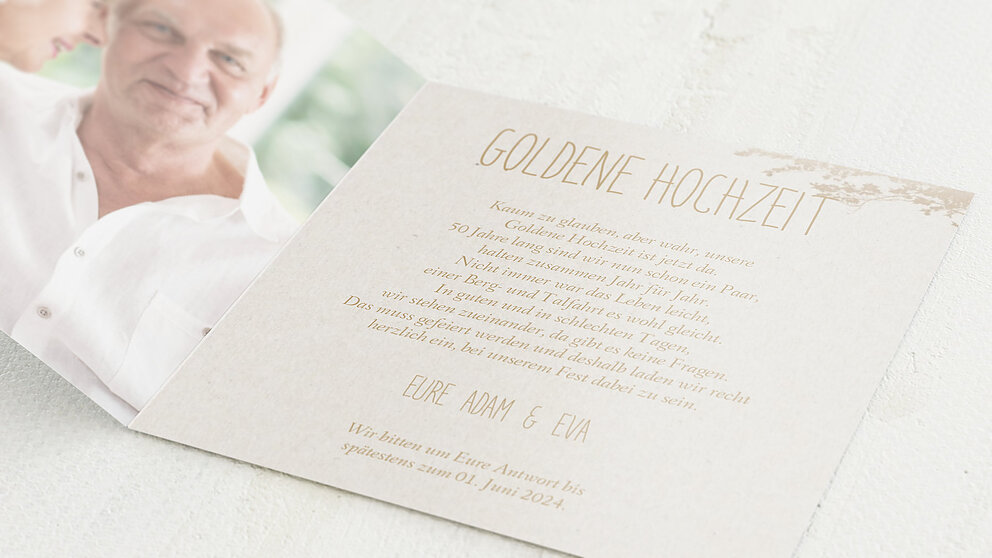 GOLDENE HOCHZEIT
Kaum zu glauben, aber wahr, unsere
Goldene Hochzeit ist jetzt da.
50 Jahre lang sind wir nun schon ein Paar,
halten zusammen Jahr für Jahr.
Nicht immer war das Leben leicht,
einer Berg- und Talfahrt es wohl gleicht.
In guten und in schlechten Tagen,
wir stehen zueinander, da gibt es keine Fragen.
Das muss gefeiert werden und deshalb laden wir recht
herzlich ein, bei unserem Fest dabei zu sein.
EURE ADAM & EVA
Wir bitten um Eure Antwort bis
spätestens zum 01. Juni 2024.